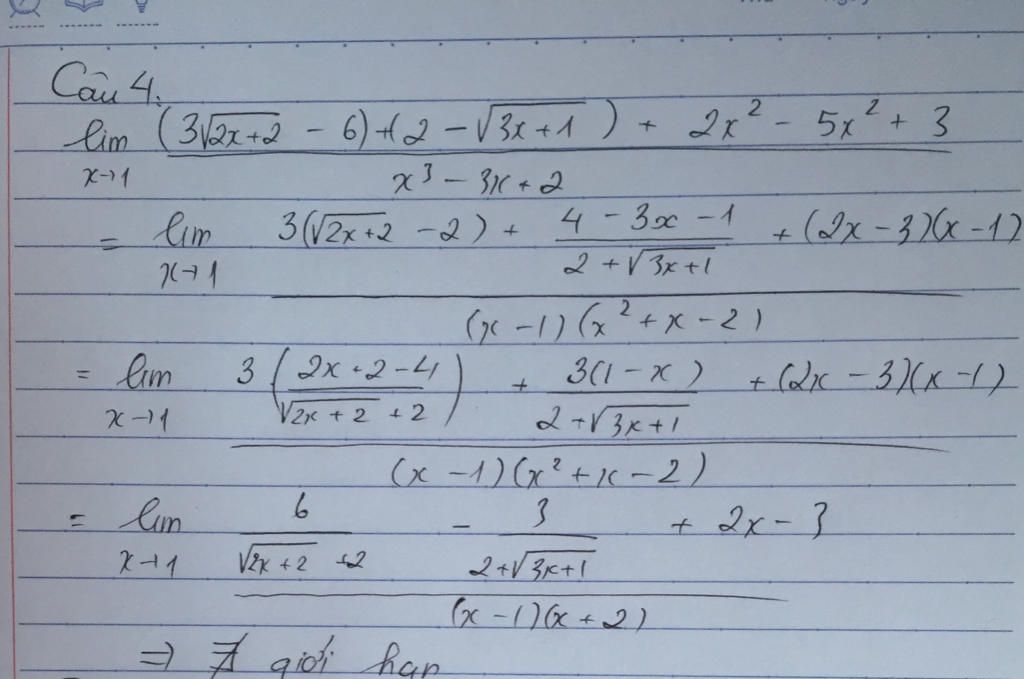 Câu 4.
lim x→1 ((3√(2x+2) - 6) + (2 - √(3x+1)) + 2x² - 5x² + 3) / (x³ - 3x + 2)
= lim x→1 (3(√(2x+2) - 2) + (4 - 3x - 1)/(2 + √(3x+1)) + (2x - 3)(x - 1)) / ((x - 1)(x² + x - 2))
= lim x→1 (3((2x + 2 - 4)/(√(2x+2) + 2)) + (3(1 - x))/(2 + √(3x+1)) + (2x - 3)(x - 1)) / ((x - 1)(x² + x - 2))
= lim x→1 (6/(√(2x+2) + 2) - 3/(2 + √(3x+1)) + 2x - 3) / ((x - 1)(x + 2))
⇒ ∄ giới hạn